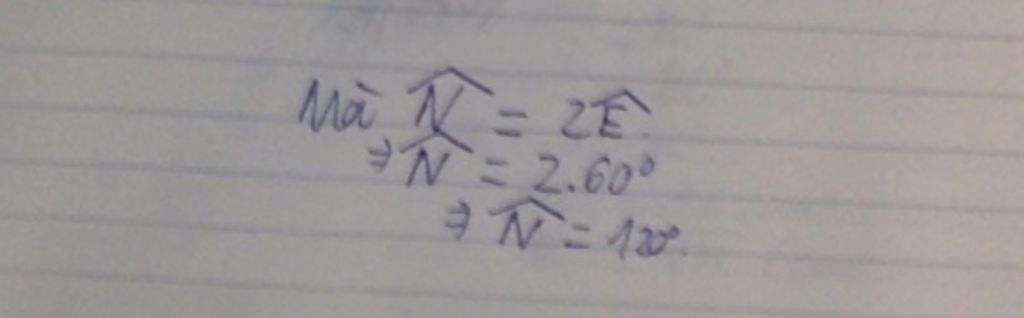 Mà N̂ = 2Ê.
⇒ N̂ = 2.60°
⇒ N̂ = 120°.